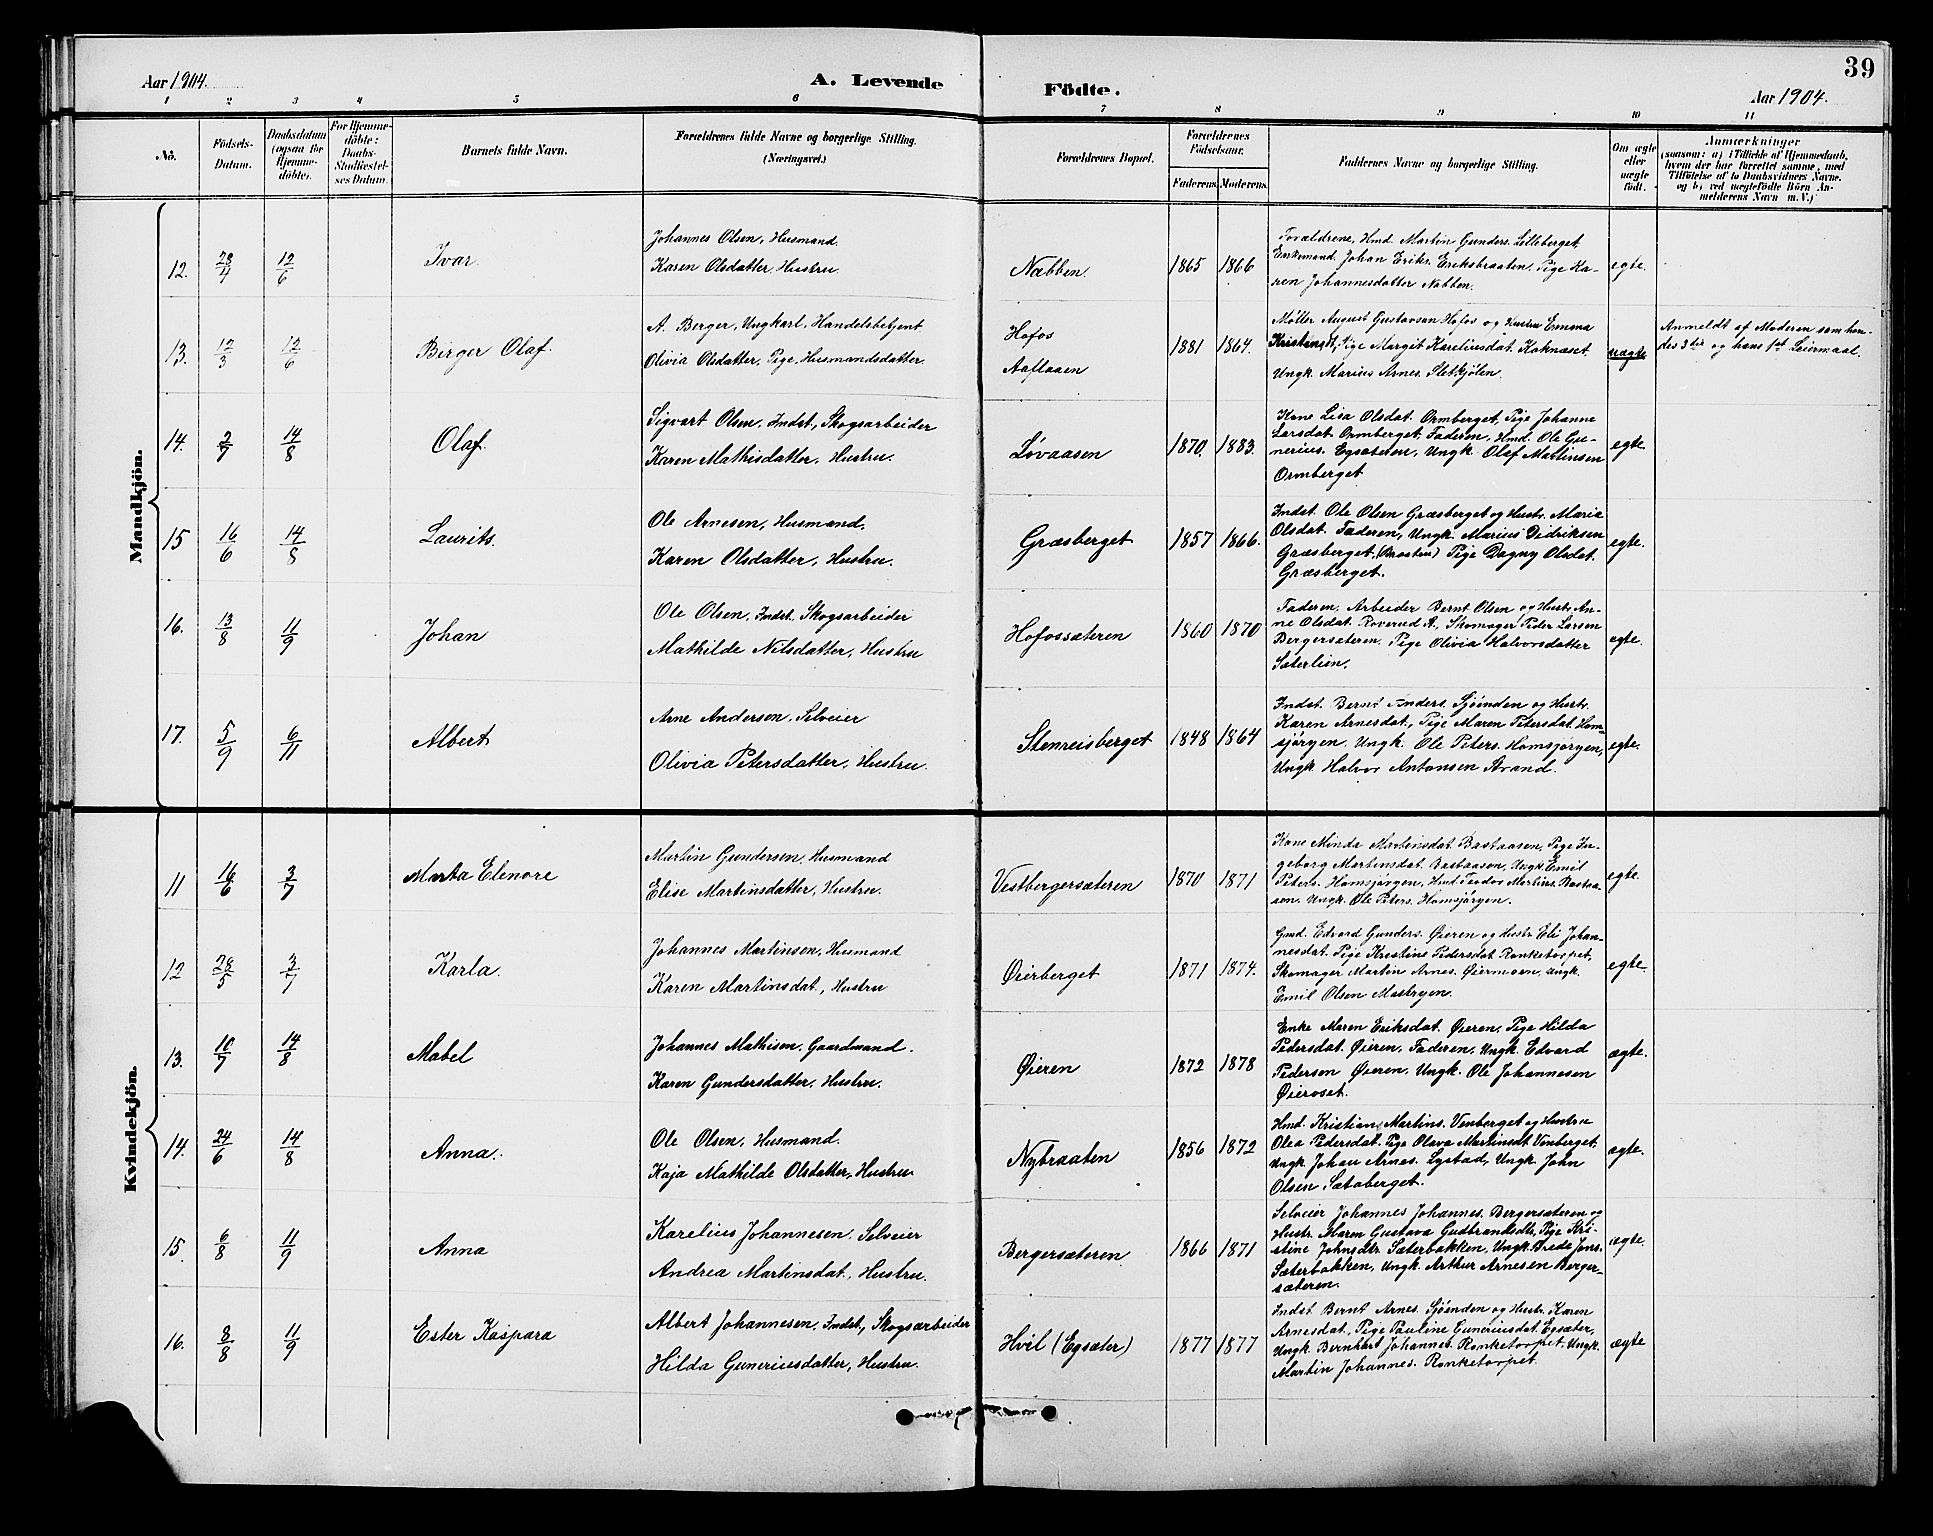 39
Aar 1904.
A. Levende
Födte.
Aar 1904.
1 2 3 4 5 6 7 8 9 10 11
No.
Födsels-
Datum.
Daabsdatum
(ogsaa for
Hjemme-
döbte).
For Hjemme-
döbte:
Daabs-
Stadfæstel-
ses Datum.
Barnets fulde Navn.
Forældrenes fulde Navne og borgerlige Stilling.
(Næringsvei.)
Forældrenes Bopæl.
Forældrenes
Födselsaar.
Faderens. Moderens.
Faddernes Navne og borgerlige Stilling.
Om ægte
eller
uægte
födt.
Anmærkninger
(saasom: a) i Tilfælde af Hjemmedaab,
hvem der har forrettet samme, med
Tilföielse af to Daabsvidners Navne.
og b) ved uægtefödte Börn An-
melderens Navn m. V.)
Mandkjön.
12. 28/4 12/6 Ivar.
Johannes Olsen, Husmand.
Karen Olsdatter, Hustru.
Næbben. 1865 1866
Forældrene, Hmd. Martin Gunders. Lilleberget,
Enkemand. Johan Eriks. Eriksbraaten, Pige Ka-
ren Johannesdatter Nabben.
egte.
13. 12/3 12/6 Birger Olaf.
A. Berger, Ungkarl, Handelsbetjent
Olivia Olsdatter, Pige, Husmandsdatter.
Hofos
Aaflaaen
1881 1864.
Møller August Gustavsen Hofos og Hustru Emma
Kristensdt, Pige Margit Kareliusdat. Kaknæset.
Ungk. Marius Arnes. Sletkjølen.
uægte
Anmeldt af Moderen som hen-
des 3die og hans 1ste Leiermaal.
14. 2/7 14/8 Olaf.
Sigvart Olsen. Indst., Skogsarbeider
Karen Mathisdatter, Hustru.
Løvaasen 1870. 1883.
Kone Lisa Olsdat. Ormberget, Pige Johanne
Larsdat. Ormberget, Faderen, Hmd. Ole Gu-
nerius. Egsæteren, Ungk. Olaf Martinsen
Ormberget.
egte.
15 16/6 14/8 Laurits.
Ole Arnesen, Husmand.
Karen Olsdatter, Hustru.
Græsberget 1857 1866.
Indst. Ole Olsen Græsberget og Hustr. Maria
Olsdat. Faderen, Ungk. Marius Didriksen
Græsberget, Pige Dagny Olsdat.
Græsberget.
egte.
16. 13/8 11/9 Johan
Ole Olsen, Indst. Skogsarbeider
Mathilde Nilsdatter, Hustru
Hofossæteren 1860 1870
Faderen, Arbeider Bernt Olsen og Hustr. An-
ne Olsdat. Roverud A., Skomager Peder Larsen
Bergersæteren. Pige Olivia Halvorsdatter
Sæterlien.
egte.
17. 5/9 6/11 Albert
Arne Andersen. Selveier
Olivia Petersdatter, Hustru.
Stenreisberget 1848 1864
Indst. Bernt Anders. Sjöenden og Hustr.
Karen Arnesdat., Pige Maren Petersdat. Hom-
sjørgen, Ungk. Ole Peters. Homsjørgen,
Ungk. Halvor Antonsen Brand.
egte.
Kvindekjön.
11 16/6 3/7 Marta Elenore
Martin Gundersen, Husmand
Elise Martinsdatter, Hustru.
Vestbergersæteren 1870 1871
Kone Minda Martinsdat. Bastaasen, Pige In-
geborg Martinsdat. Bastaasen, Ungk. Emil
Peters. Homsjørgen, Hmd. Teodor Martins. Bastaa-
sen. Ungk. Ole Peters. Homsjørgen.
egte.
12 28/5 3/7 Karla.
Johannes Martinsen, Husmand
Karen Martinsdat., Hustru
Øierberget 1871 1874.
Gmd. Edvard Gunders. Øieren og Hustr. Eli Johan-
nesdat. Pige Kristine Pedersdat. Ronketorpet,
Skomager Martin Arnes. Øiermoen, Ungk.
Emil Olsen Mastryen.
egte.
13. 10/7 14/8 Mabel
Johannes Mathisen. Gaardmand.
Karen Gundersdatter, Hustru.
Øieren 1872 1878
Enke Maren Eriksdat. Øieren, Pige Hilda
Pedersdat. Øieren, Faderen, Ungk. Edvard
Pedersen Øieren, Ungk. Ole Johannesen
Øieroset.
ægte.
14. 24/6 14/8 Anna.
Ole Olsen, Husmand.
Kaja Mathilde Olsdatter, Hustru.
Nybraaten 1856 1872
Hmd. Kristian Martins. Venberget og Hustru
Olea Pedersdat. Pige Olava Martinsdt. Venberget,
Ungk. Johan Arnes. Lystad, Ungk. John
Olsen Sætaberget.
ægte.
15. 6/8 11/9 Anna
Karelius Johannesen. Selveier
Andrea Martinsdat., Hustru.
Bergersæteren 1866 1871
Selveier Johannes Johannes. Bergersæteren og
Hustr. Maren Gustava Gudbrandsdt., Pige Kri-
stine Johnsdtr. Sæterbakken, Ungk. Brede Jons.
Sæterbakken, Ungk. Arthur Arnesen Berger-
sæteren.
ægte.
16. 8/8 11/9 Ester Kaspara
Albert Johannesen, Indst., Skogsarbeider
Hilda Guneriusdatter, Hustru.
Hvil (Egsæter) 1877 1877
Indst. Bernt Arnes. Sjöenden og Hustr. Karen
Arnesdat., Pige Pauline Guneriusdat. Egsæter,
Ungk. Bernhart Johannes. Ronketorpet, Ungk.
Martin Johannes. Ronketorpet.
ægte